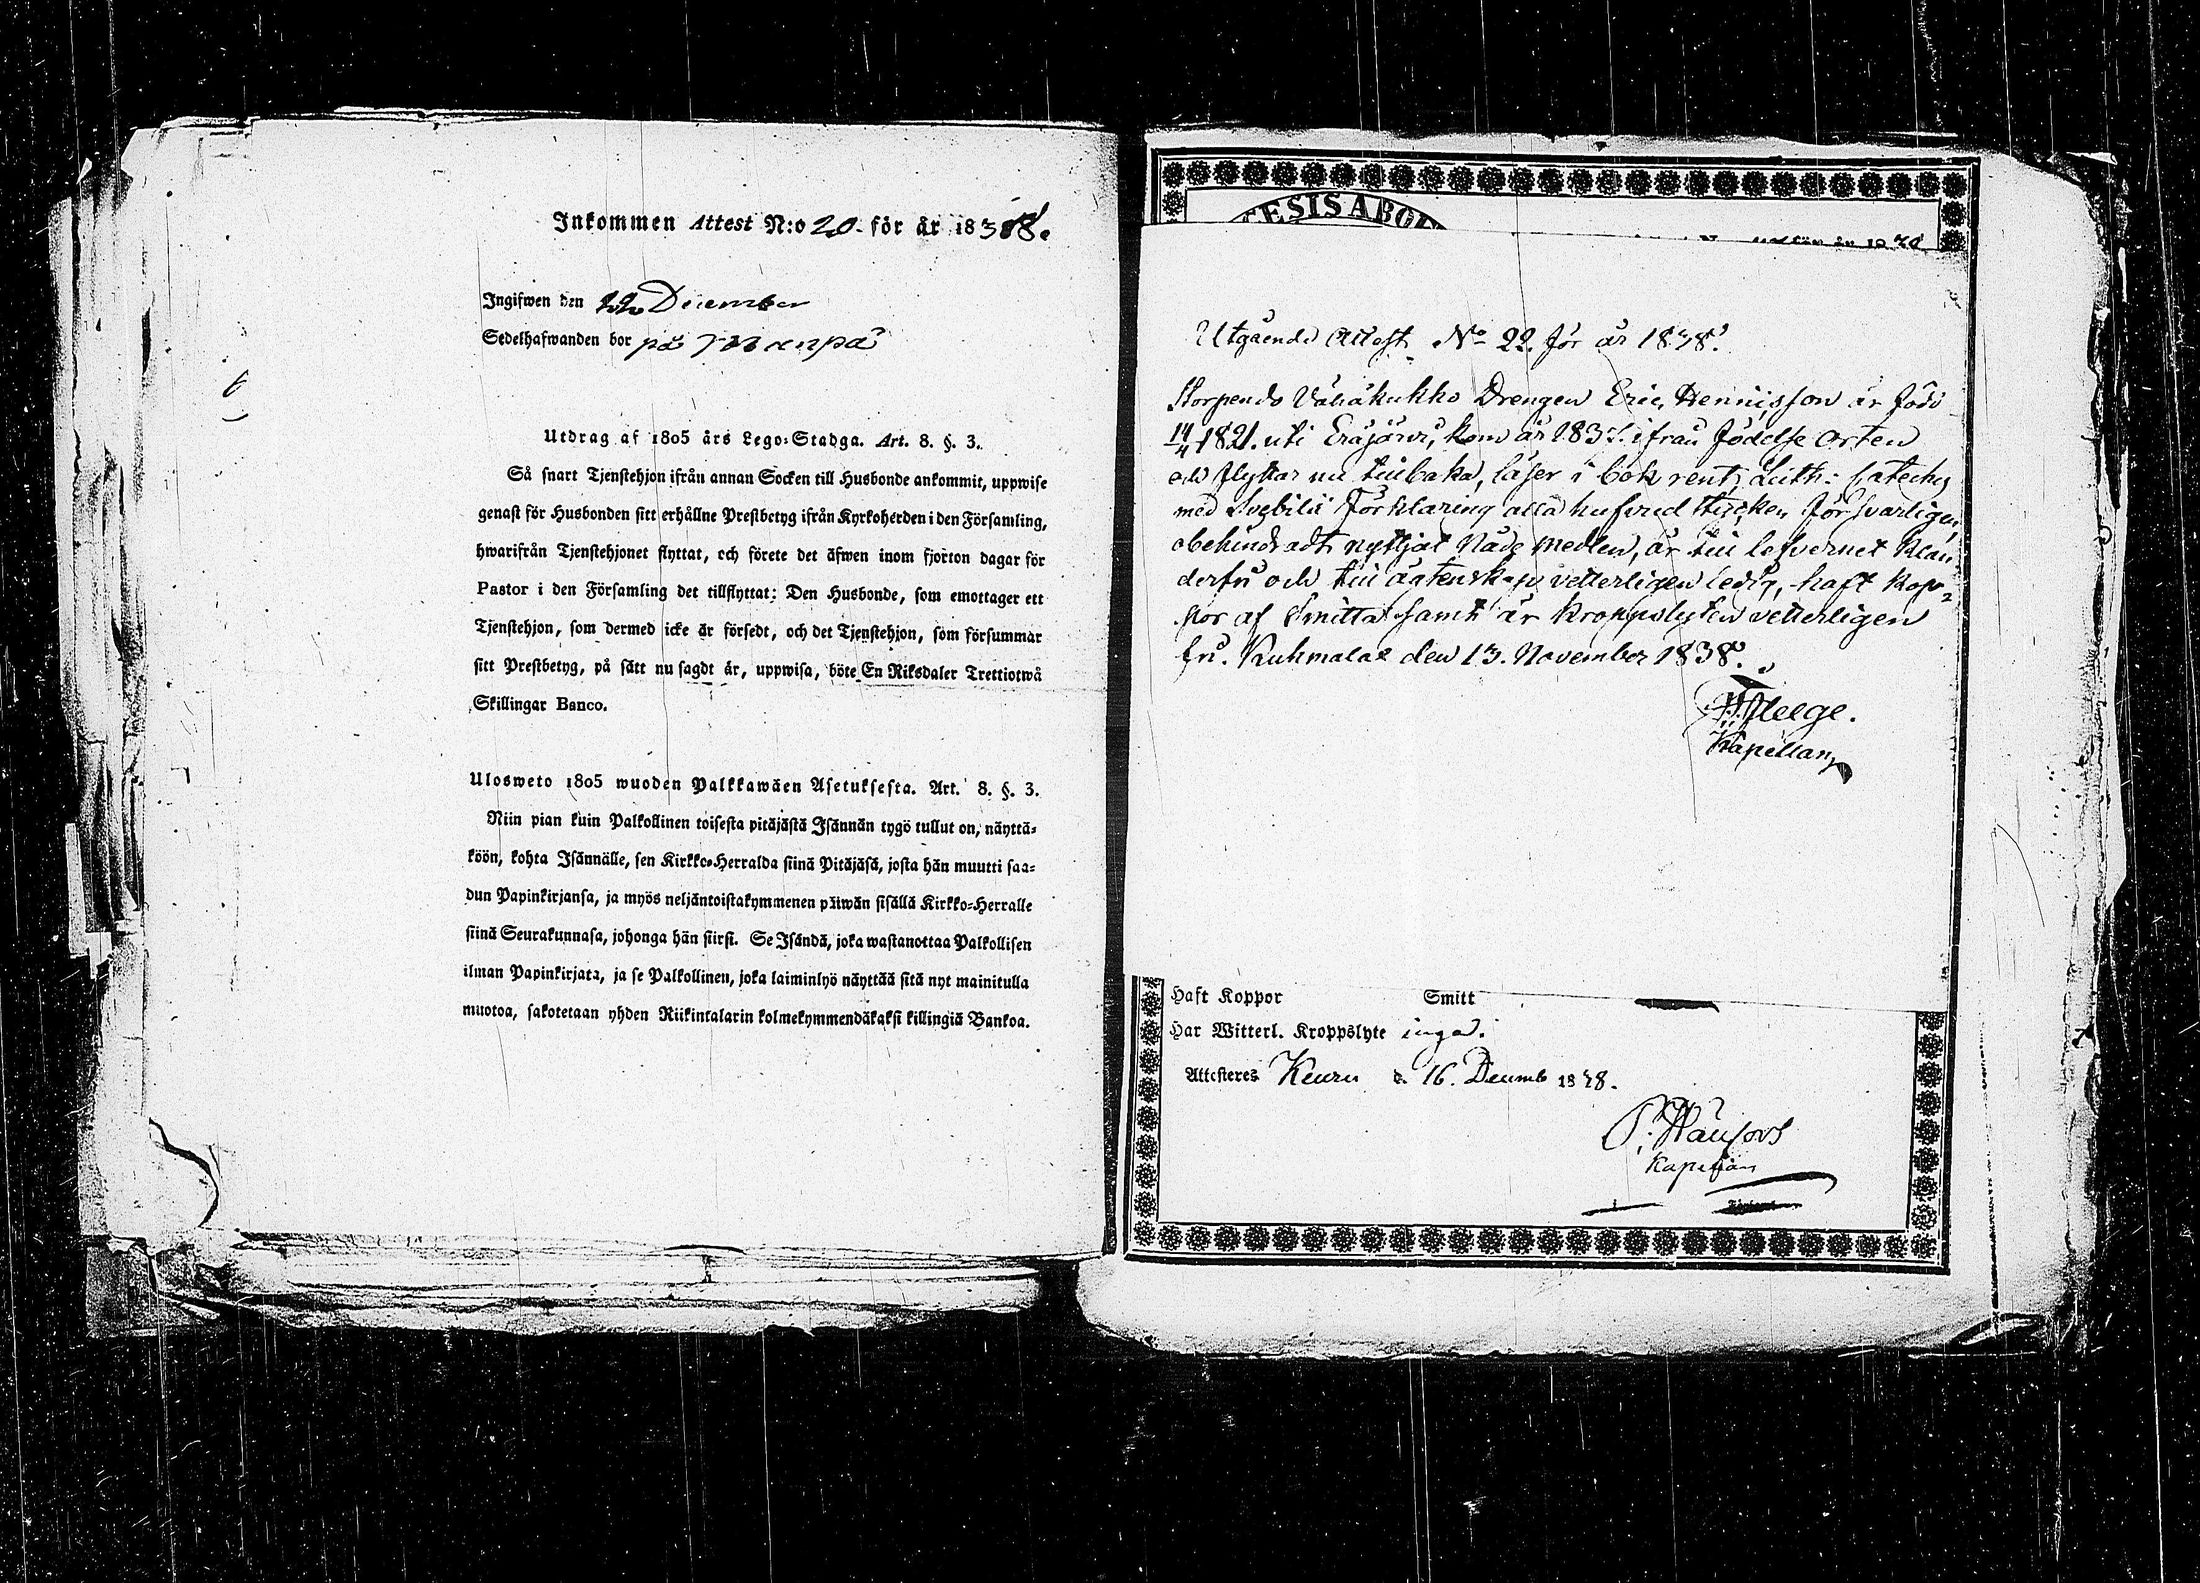 Inkommen Attest N:o 20. för år 1838.
Ingifwen den 22 December
Sedelhafwanden bor på
Utdrag af 1805 års Lego-Stadga. Art. 8. §. 3.
Så snart Tjenstehjon ifrån annan Socken till Husbonde ankommit, uppwise
genast för Husbonden sitt erhållne Prestbetyg ifrån Kyrkoherden i den Församling,
hwarifrån Tjenstehjonet flyttat, och förete det äfwen inom fjorton dagar för
Pastor i den Församling det tillflyttat: Den Husbonde, som emottager ett
Tjenstehjon, som dermed icke är försedt, och det Tjenstehjon, som försummar
sitt Prestbetyg, på sätt nu sagdt är, uppwisa, böte En Riksdaler Trettiotwå
Skillingar Banco.
Ulosweto 1805 wuoden Palkkawäen Asetuksesta. Art. 8. §. 3.
Niin pian kuin Palkollinen toisesta pitäjästä Isännän tygö tullut on, näyttä-
köön, kohta Isännälle, sen Kirkko-Herralda siinä Pitäjäsä, josta hän muutti saa-
dun Papinkirjansa, ja myös neljäntoistakymmenen päiwän sisällä Kirkko-Herralle
siinä Seurakunnasa, johonga hän siirsi. Se Isändä, joka wastanottaa Palkollisen
ilman Papinkirjata, ja se Palkollinen, joka laiminlyö näyttää sitä nyt mainitulla
muotoa, sakotetaan yhden Riikintalarin kolmekymmendäkaksi killingiä Bankoa.
ESIS ABO
Utgående Attest No 22. för år 1838.
Torpends Vähäkukko Drengen Eric Hennisson är född
14/4 1821. uti Eräjärvi, kom år 1837. ifrån födelse Orten
och flyttar nu tillbaka, läser i bok rent, Luth: Cateches
med Svebilii Förklaring alla hufvud stycken försvarligen,
obehindradt nyttjat Nåde Medlen, är till lefvernet klan-
derfri och till ägtenskap vetterligen ledig, haft kop-
por af Smitta samt är kroppslyten vetterligen
fri. Kuhmalax den 13. November 1838.
Kapellan
Haft Koppor Smitt
Har Witterl. Kroppslyte inga.
Attesteres Keuru d. 16. Decemb 1838.
Kapellan